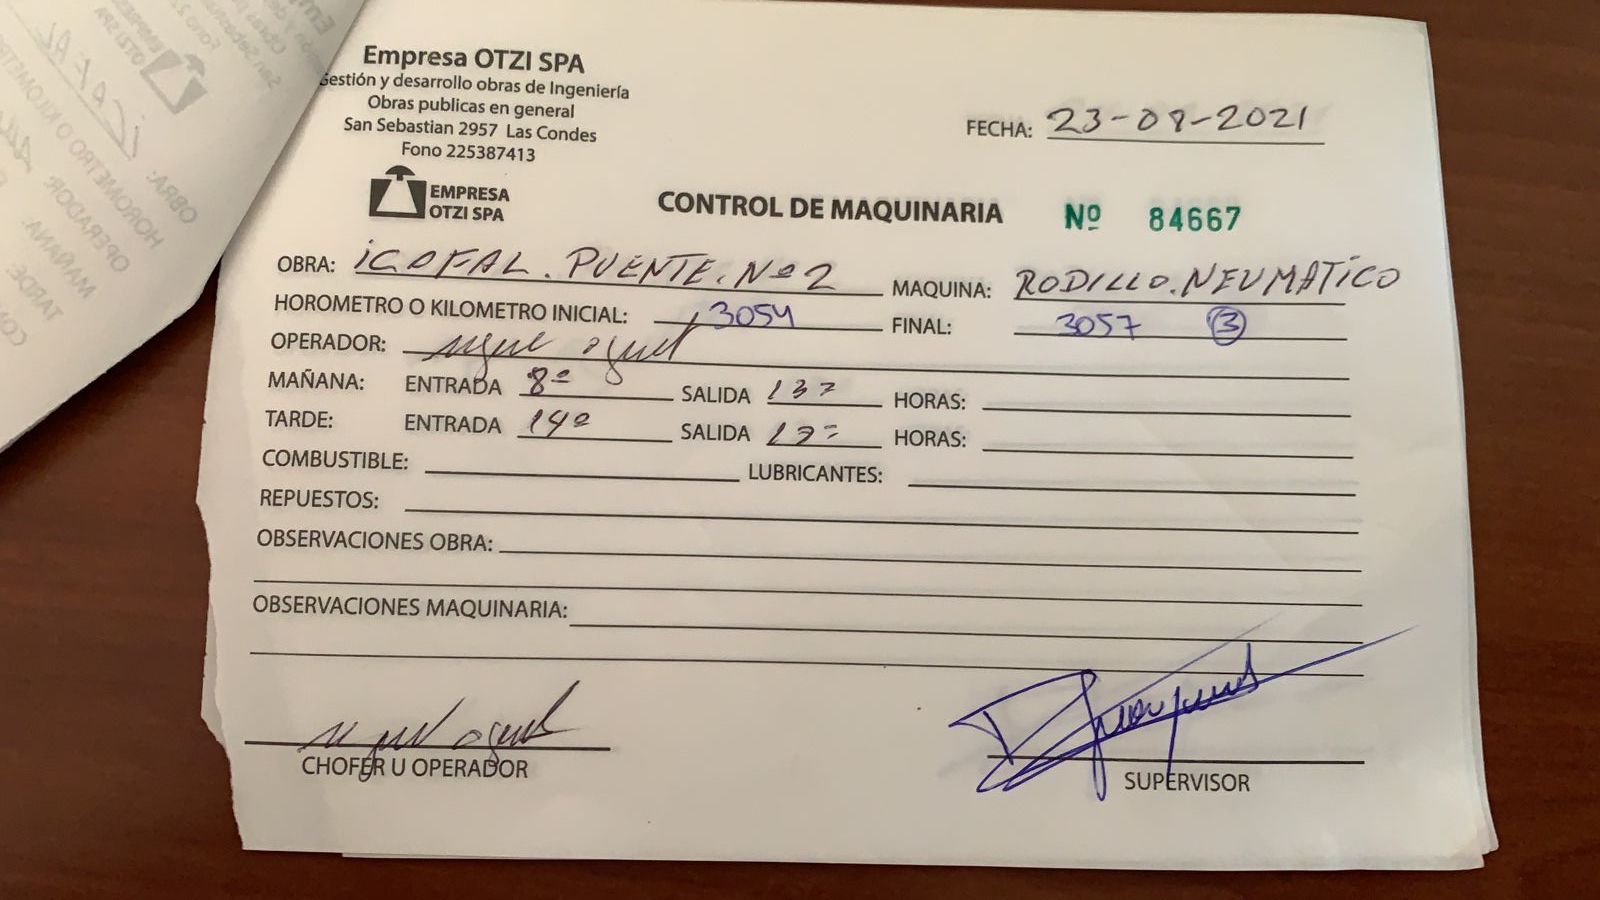 Empresa OTZI SPA
Gestión y desarrollo obras de Ingeniería
Obras publicas en general
San Sebastian 2957 Las Condes
Fono 225387413
EMPRESA
OTZI SPA
FECHA: 23-08-2021
CONTROL DE MAQUINARIA Nº 84667
OBRA: iCOFAL. PUENTE. Nº2 MAQUINA: RODILLO. NEUMATICO
HOROMETRO O KILOMETRO INICIAL: 3054 FINAL: 3057 3
OPERADOR:
MAÑANA: ENTRADA 8º SALIDA 13º HORAS:
TARDE: ENTRADA 14º SALIDA 17º HORAS:
COMBUSTIBLE: LUBRICANTES:
REPUESTOS:
OBSERVACIONES OBRA:
OBSERVACIONES MAQUINARIA:
CHOFER U OPERADOR
SUPERVISOR